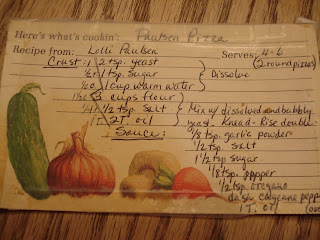 Here's what's cookin': Paulsen Pizza
Recipe from: Lolli Paulsen Serves: 4-6
(2 round pizzas)
Crust: 2 tsp. yeast
1 tsp. Sugar
1 cup warm water Dissolve
3 cups flour
1/2 tsp. Salt Mix w/ dissolved and bubbly
2 T. oil yeast. Knead - Rise double.
Sauce: 1/8 tsp. garlic powder
1/2 tsp. Salt
1 1/2 tsp sugar
1/8 tsp. pepper
1/2 tsp. oregano
dash cayenne pepper
1 T. oil (over